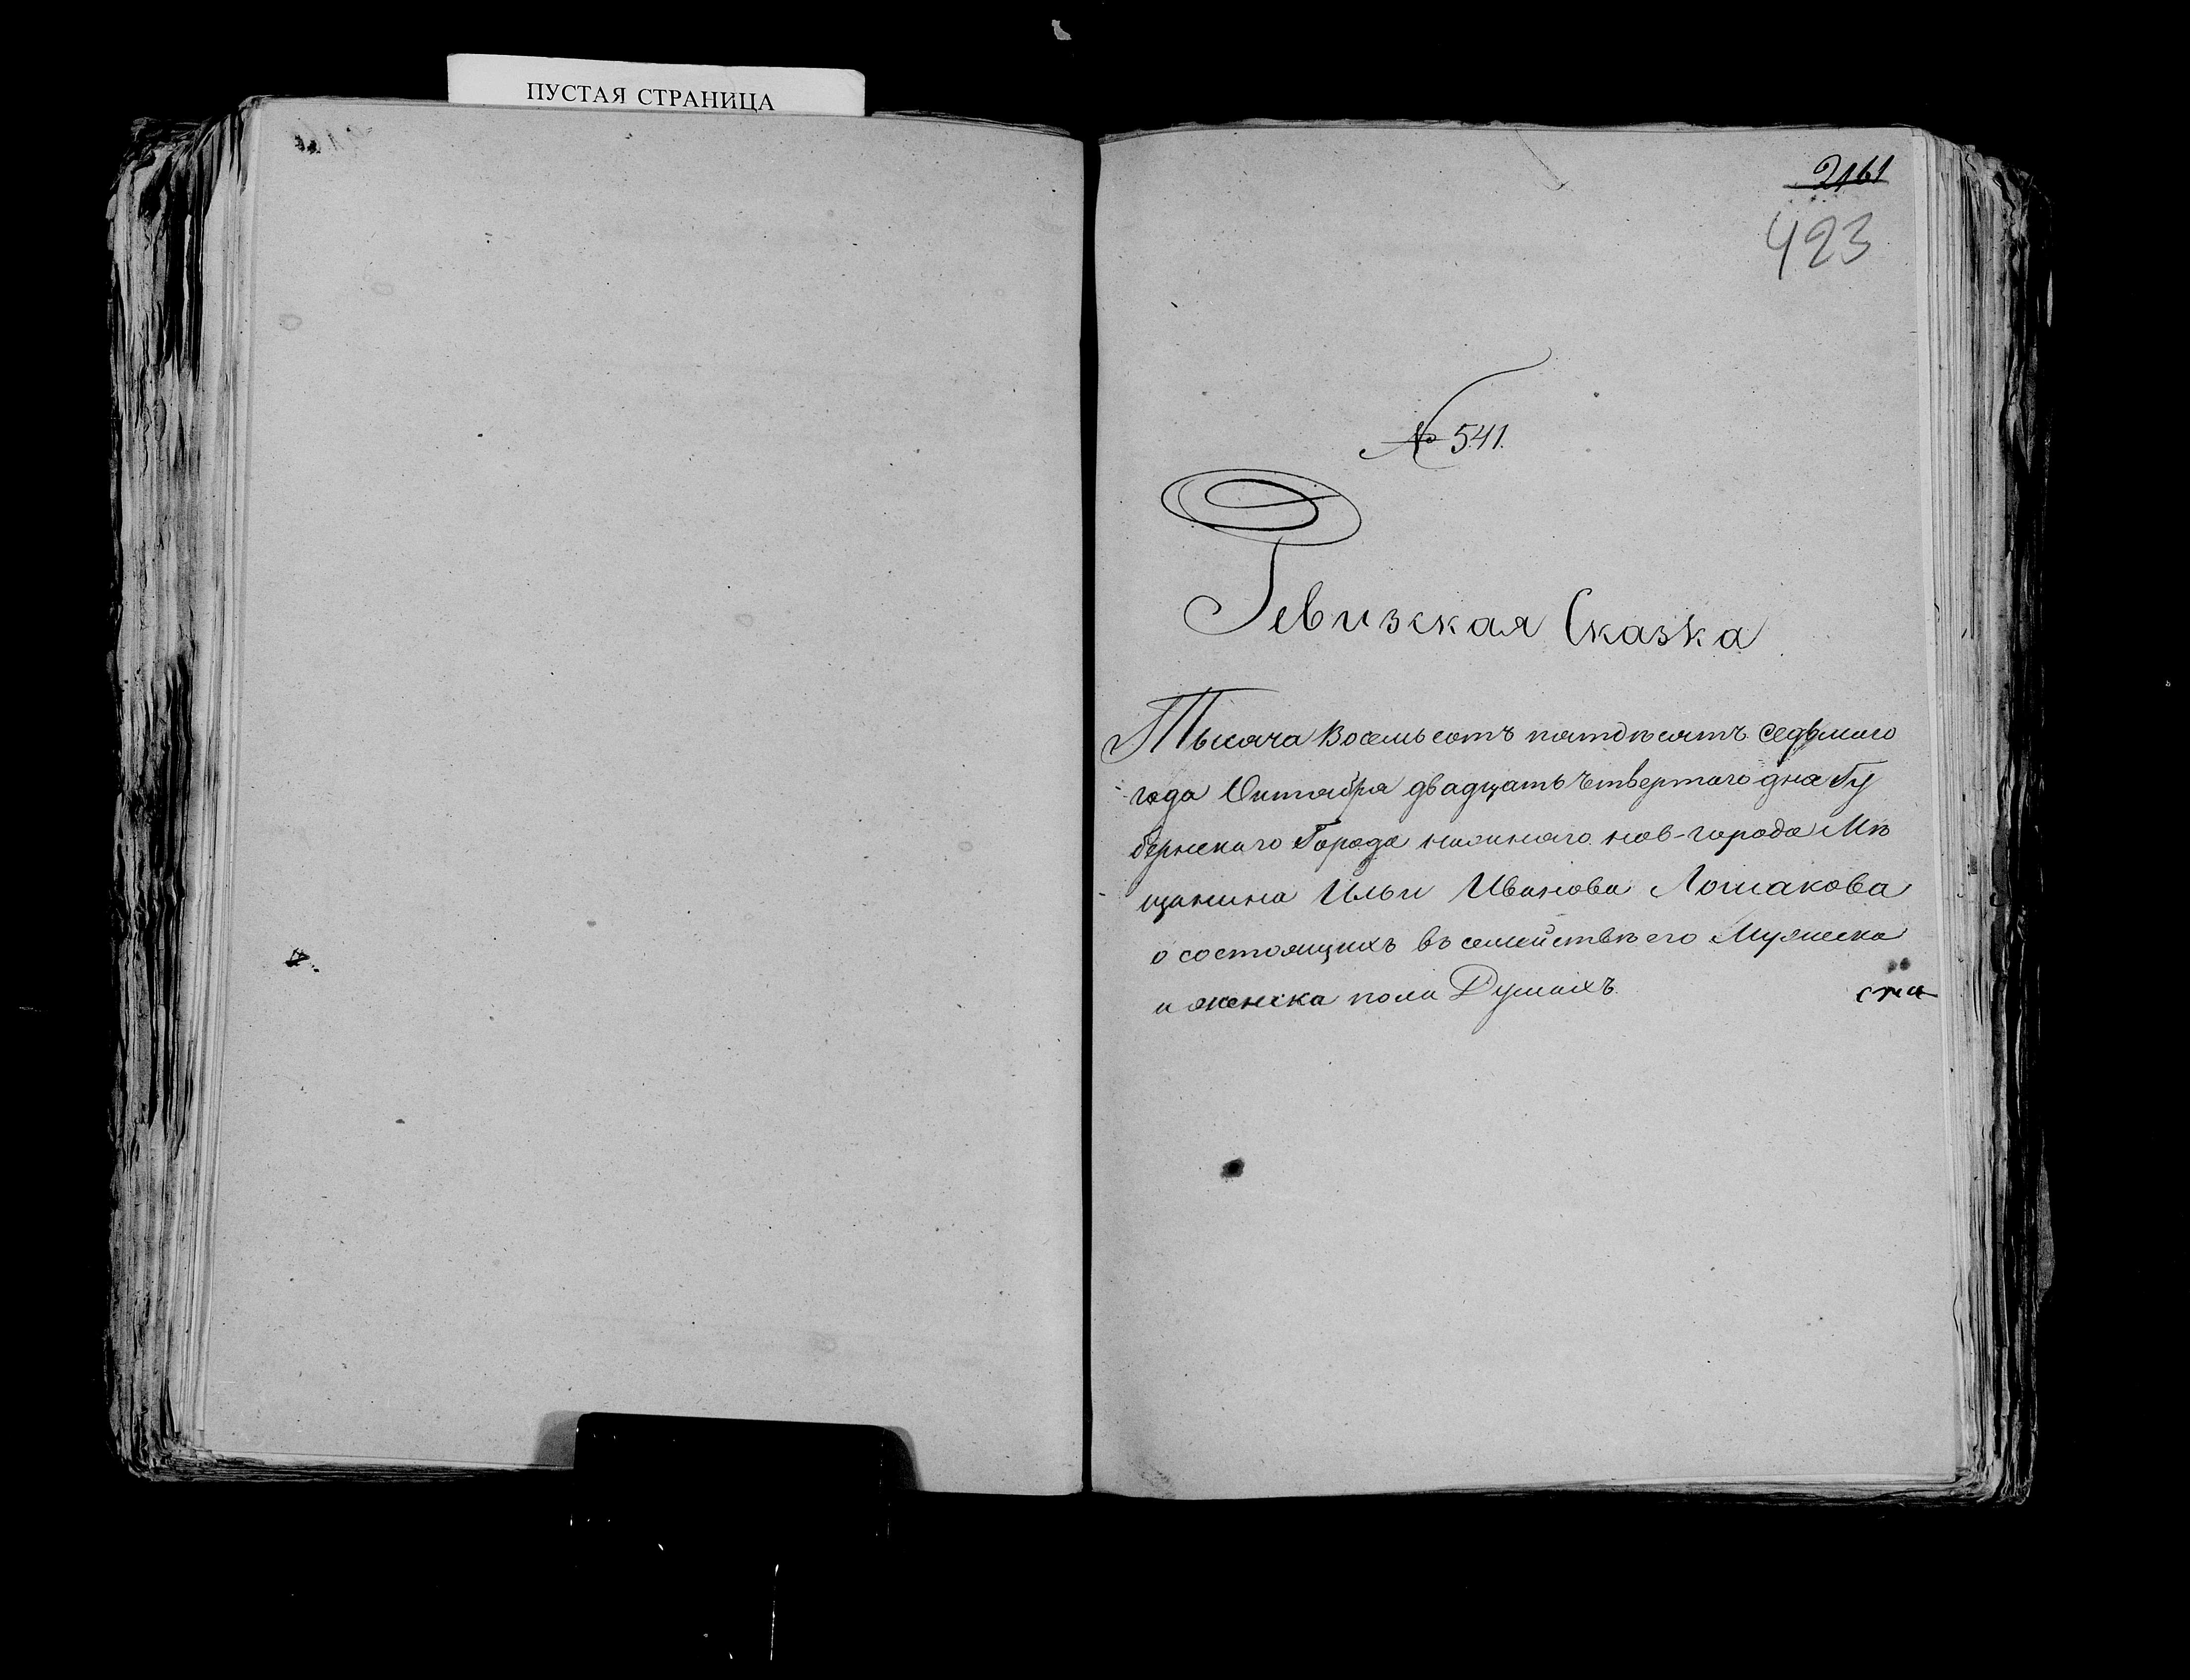 ПУСТАЯ СТРАНИЦА
2161
423
№ 541.
Ревизская Сказка
Тысяча Восемьсотъ пятдѣсятъ седьмого
года Октября двадцать четвертаго дня Гу
бернскаго Города нижняго нов-города Мѣ
щанина Ильи Иванова Лошакова
о состоящихъ въ семействѣ его Мужеска
и женска пола Душахъ.